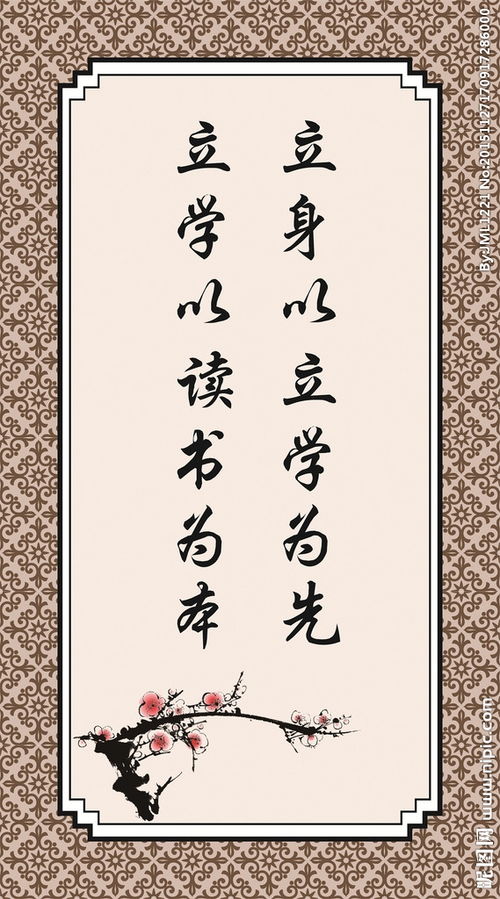 立身以立学为先
立学以读书为本
By:JML1221 No:20151127170917286000
昵图网 www.nipic.com